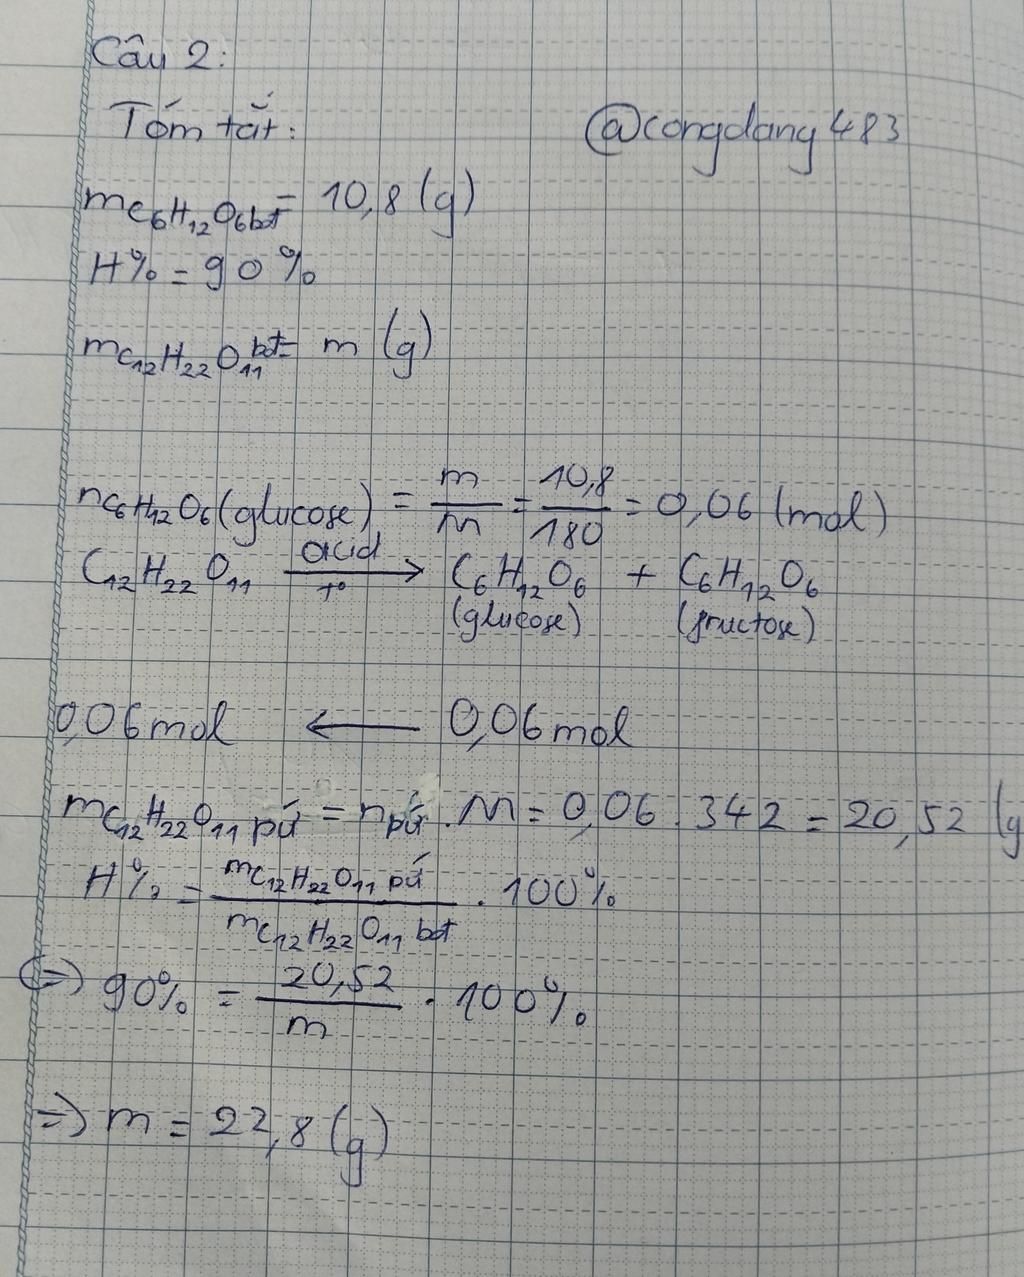 Câu 2:
Tóm tắt: @congdang483
mC6H12O6bđ = 10,8 (g)
H% = 90%
mC12H22O11bđ = m (g)
nC6H12O6 (glucose) = m/M = 10,8/180 = 0,06 (mol)
C12H22O11 acid/t° → C6H12O6 + C6H12O6
(glucose) (fructose)
0,06 mol ← 0,06 mol
mC12H22O11 pứ = npứ . M = 0,06 . 342 = 20,52 (g
H% = mC12H22O11 pứ / mC12H22O11 bđ . 100%
(=) 90% = 20,52/m . 100%
=) m = 22,8 (g)